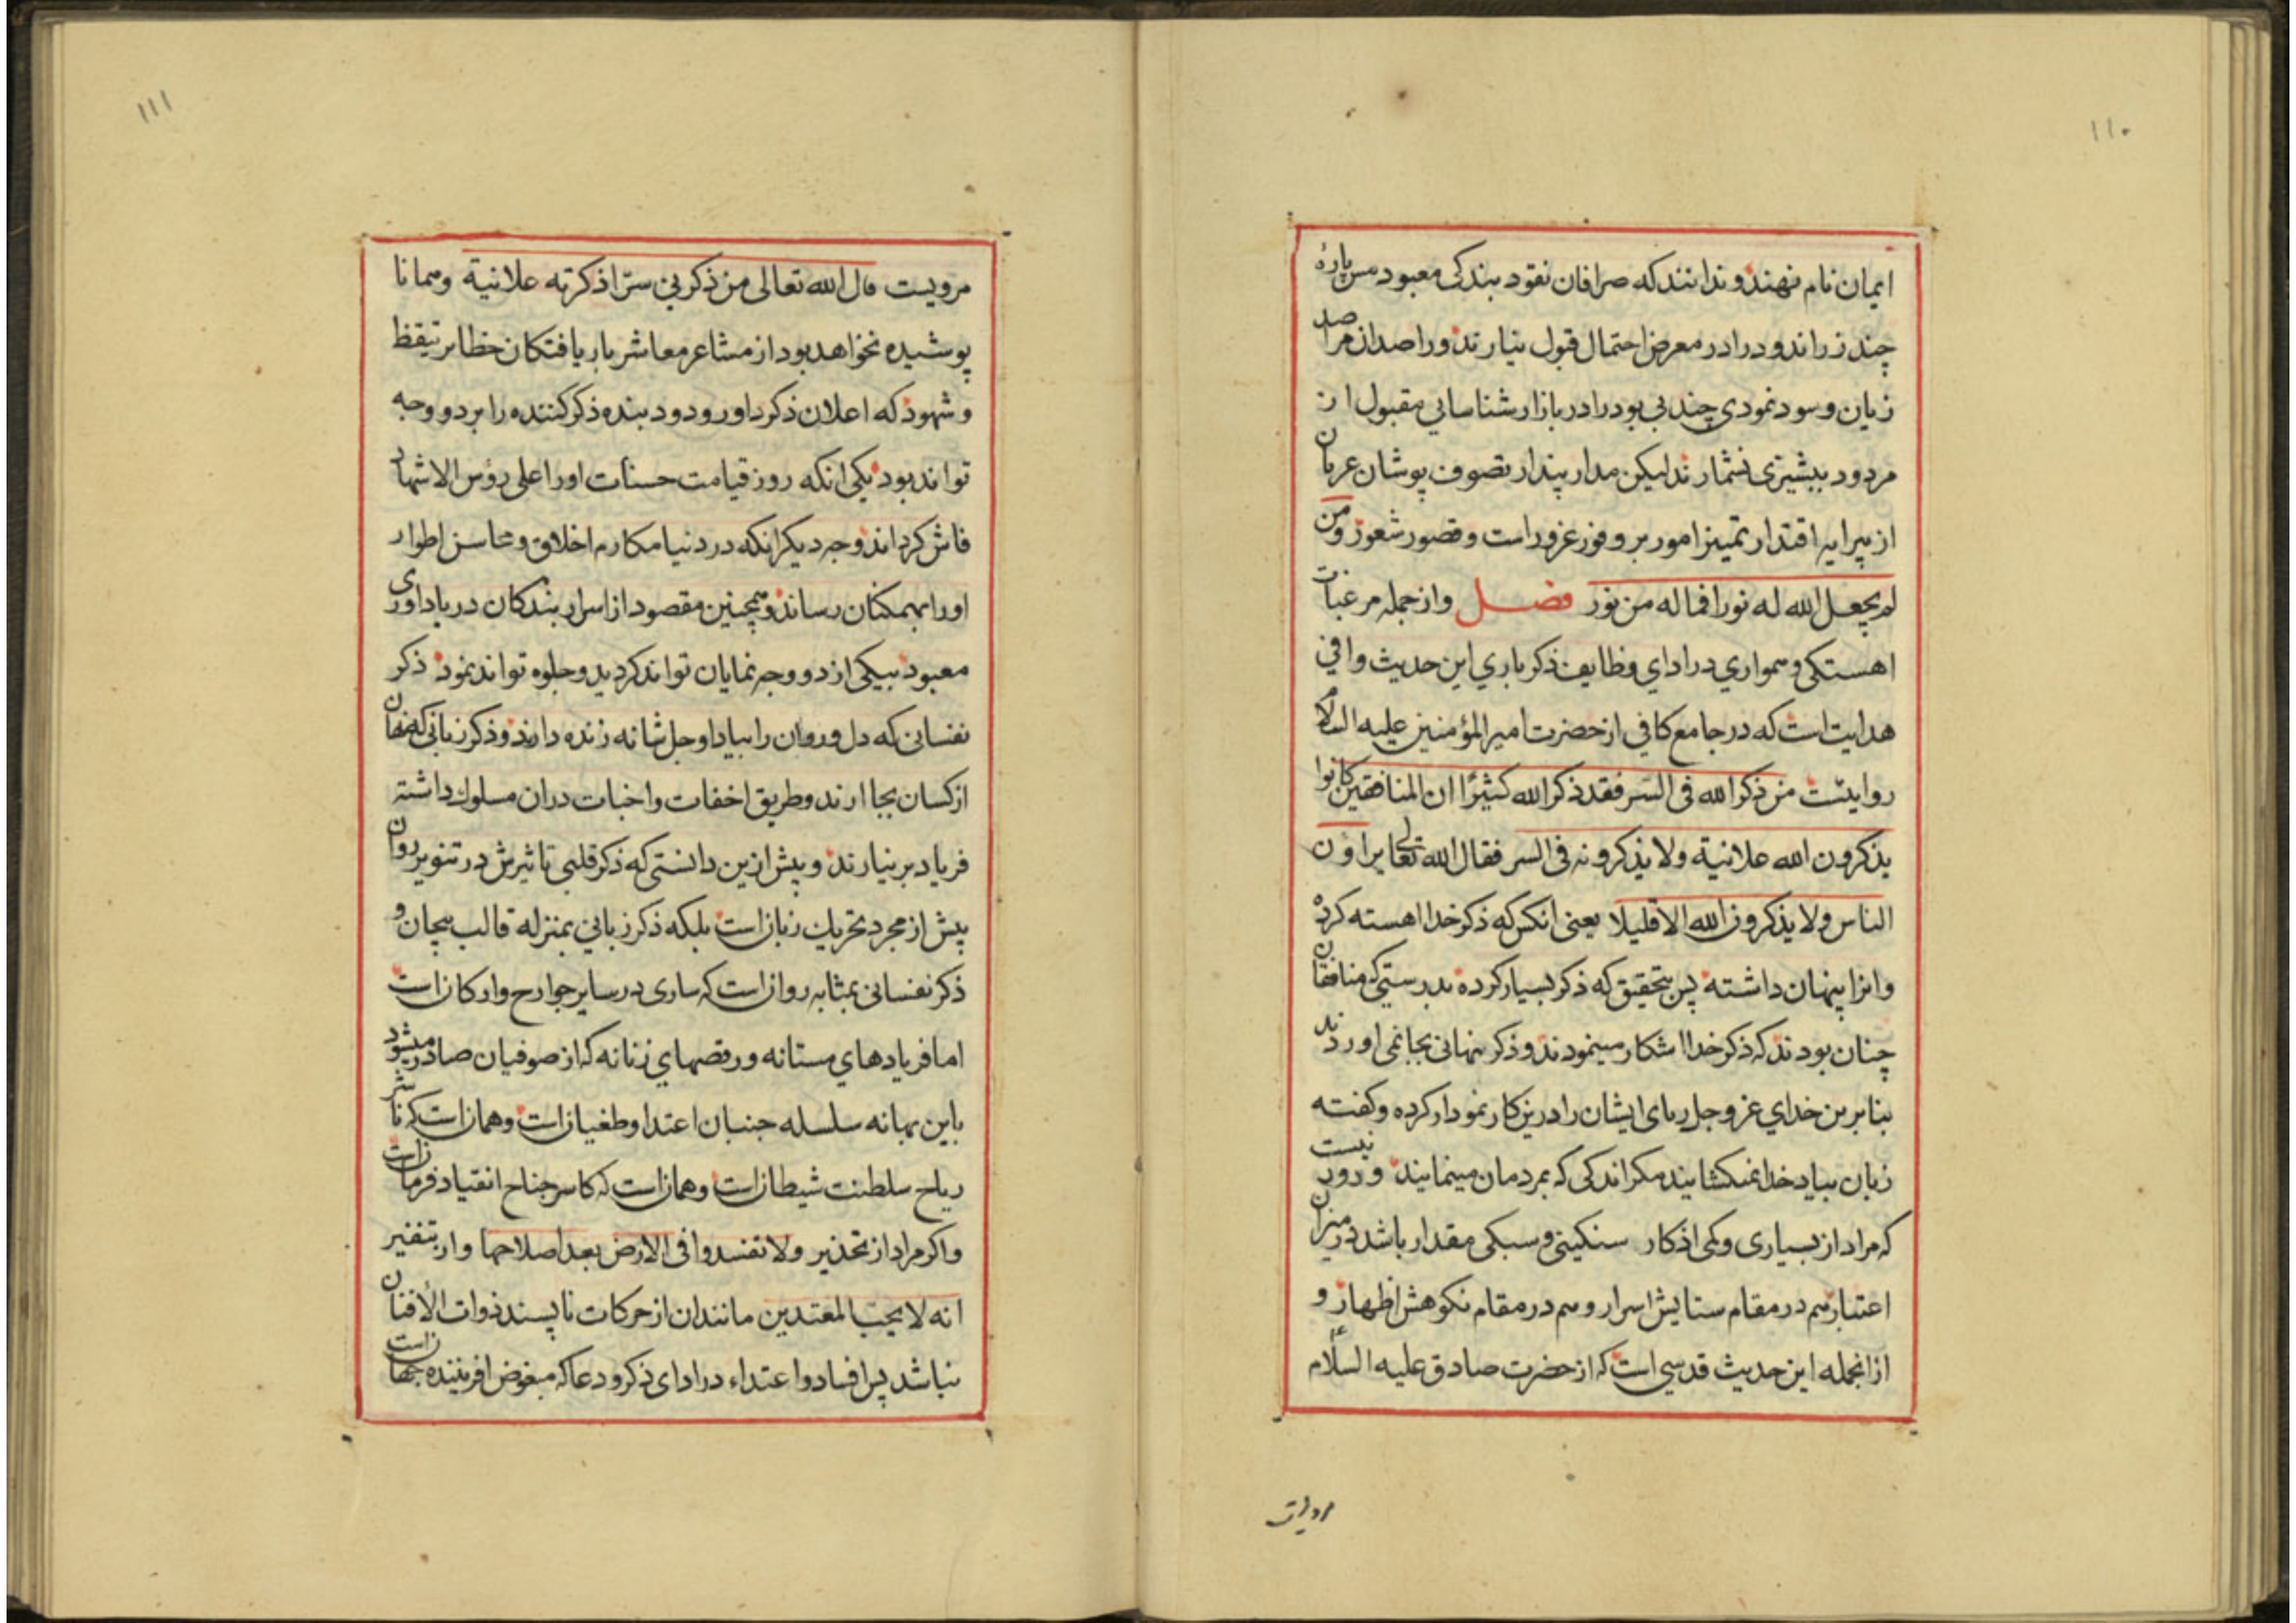 ۱۱۰
ایمان نام نهند و ندانند که صرافان نقود بندکی معبود مس پارهٔ
چند زراندود را در معرض احتمال قبول نیارند و راصدان مراصد
زیان و سود نمودی چند بی بود را در بازار شناسایی مقبول از
مردود ببشیزی نشمارند لیکن مدار پندار تصوف پوشان عریان
از پیرایه اقتدار تمییز امور بر وفور غرور است و قصور شعور و من
لم یجعل الله له نورا فما له من نور فصل و از جمله مرغبات
اهستکی و همواری در ادای وظایف ذکر باری این حدیث وافی
هدایت است که در جامع کافی از حضرت امیر المؤمنین علیه السلام
روایتست من ذکر الله فی السر فقد ذکر الله کثیرًا ان المنافقین کانوا
یذکرون الله علانیة ولا یذکرونه فی السر فقال الله تعالی یراؤن
الناس ولا یذکرون الله الا قلیلا یعنی انکس که ذکر خدا اهسته کرده
و انرا پنهان داشته پس بتحقیق که ذکر بسیار کرده بدرستی که منافقان
چنان بودند که ذکر خدا اشکار مینمودند و ذکر نهانی بجا نمی اوردند
بنابرین خدای عز و جل ریای ایشان را درین کار نمودار کرده و کفته
زبان بیاد خدا نمیکشایند مکر اندکی که بمردمان مینمایند و دور نیست
که مراد از بسیاری و کمی اذکار سنکینی و سبکی مقدار باشد در میزان
اعتبار هم در مقام ستایش اسرار و هم در مقام نکوهش اظهار و
از انجمله این حدیث قدسی است که از حضرت صادق علیه السلام
مرویت
۱۱۱
مرویست قال الله تعالی من ذکرنی سرّا ذکرته علانیة و همانا
پوشیده نخواهد بود از مشاعر معاشر بار یافتکان حظایر تیقظ
و شهود که اعلان ذکر داور ودود بنده ذکر کننده را بر دو وجه
تواند بود یکی انکه روز قیامت حسنات او را علی رؤس الاشهاد
فاش کرداند وجه دیکر انکه در دنیا مکارم اخلاق و محاسن اطوار
او را بهمکنان رساند و همچنین مقصود از اسرار بندکان در یاداوری
معبود بیکی از دو وجه نمایان تواند کردید و جلوه تواند نمود ذکر
نفسانی که دل و روان را بیاد او جل شانه زنده دارند و ذکر زبانی که نهان
از کسان بجا ارند و طریق اخفات و اخبات در ان مسلوک داشته
فریاد بر نیارند و پیش ازین دانستی که ذکر قلبی تاثیرش در تنویر روان
پیش از مجرد تحریک زبان است بلکه ذکر زبانی بمنزله قالب بیجان و
ذکر نفسانی بمثابه روان است که ساری در سایر جوارح و ارکان است
اما فریادهای مستانه و رقصهای زنانه که از صوفیان صادر میشود
باین بهانه سلسله جنبان اعتدا و طغیان است و همان است که ناشر
ریاح سلطنت شیطان است و همان است که کاسر جناح انقیاد فرمان است
و اکر مراد از تحذیر ولا تفسدوا فی الارض بعد اصلاحها و از تنفیر
انه لا یحب المعتدین مانند ان از حرکات ناپسند ذوات الافنان
نباشد پس افساد و اعتداء در ادای ذکر و دعا که مبغوض افریننده جهان است